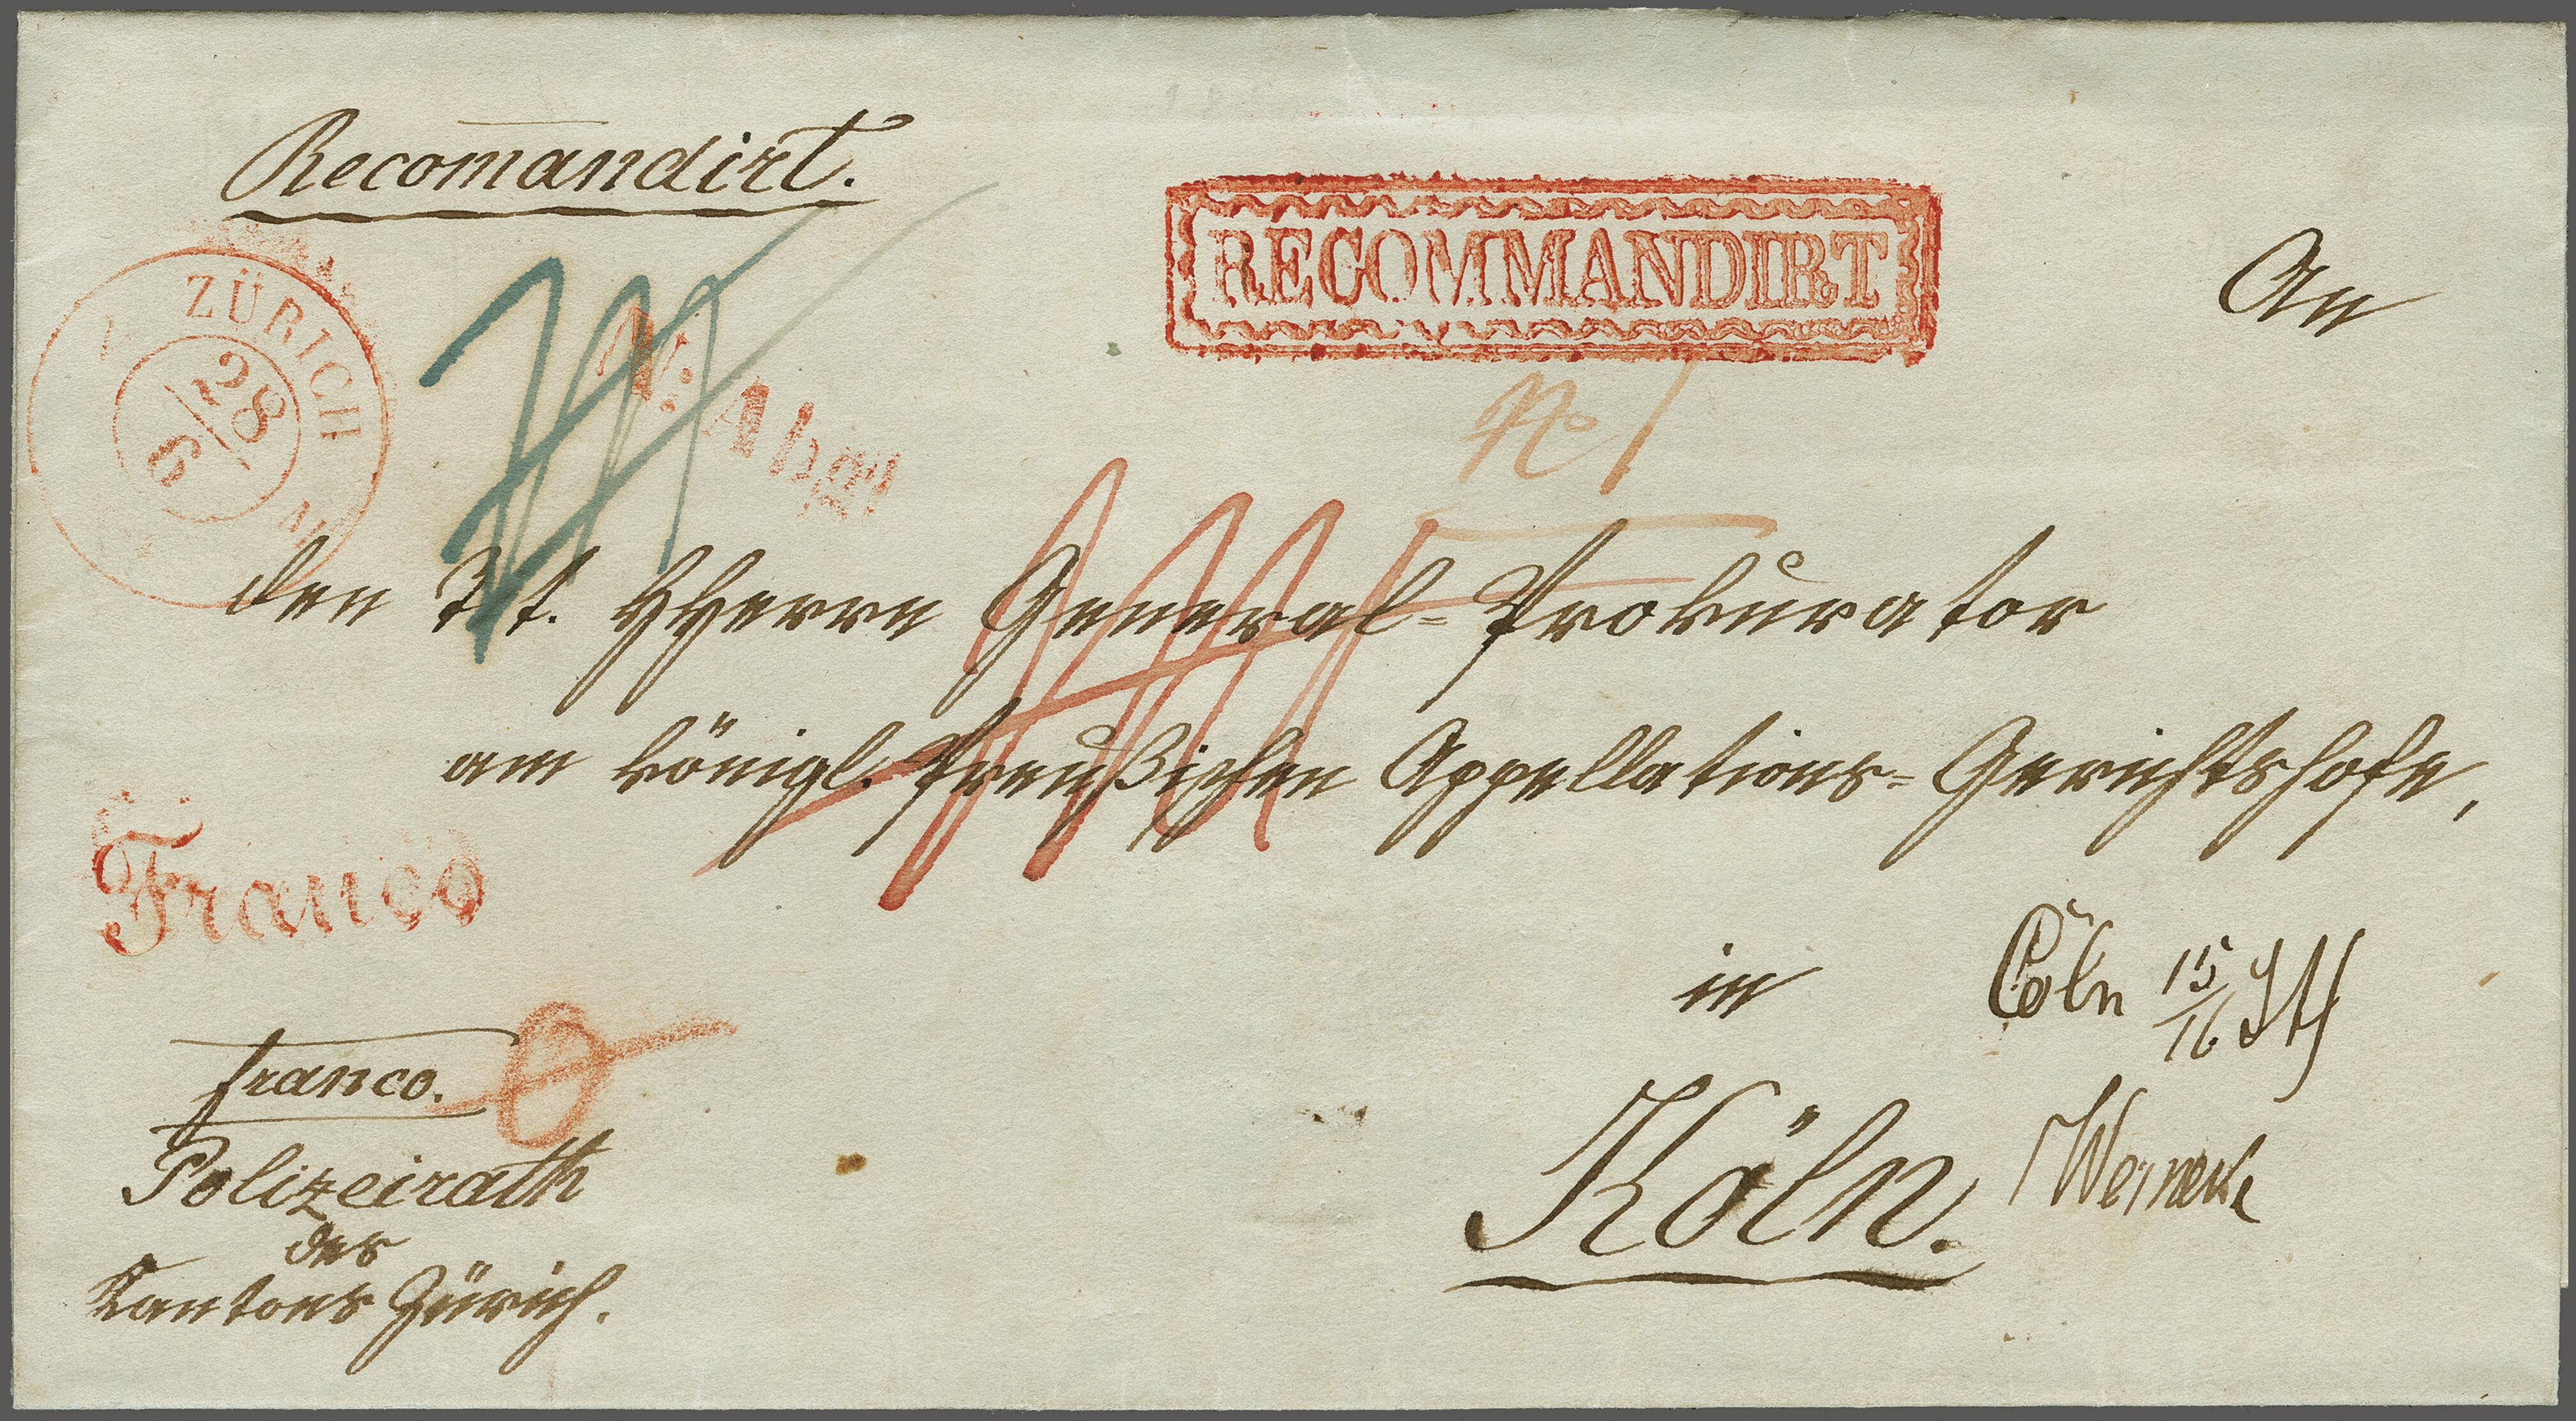 Recomandirt.
RECOMMANDIRT
An
ZÜRICH
28
6
M
N. Abg.
No 1
den Tit. HHerrn General-Prokurator
am königl. Preußischen Appellations-Gerichtshofe,
Franco
in
Cöln 15/16
franco.
Köln.
Polizeirath
des
Kantons Zürich.